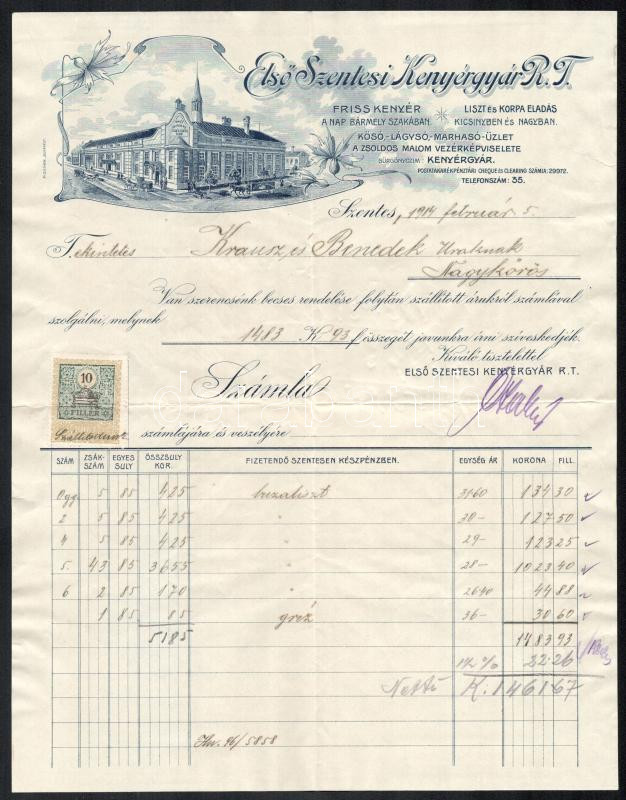 Első Szentesi Kenyérgyár R.T.
FRISS KENYÉR
A NAP BÁRMELY SZAKÁBAN.
LISZT ÉS KORPA ELADÁS
KICSINYBEN ÉS NAGYBAN.
KŐSÓ,-LÁGYSÓ,-MARHASÓ-ÜZLET
A ZSOLDOS MALOM VEZÉRKÉPVISELETE
SÜRGÖNYCZIM: KENYÉRGYÁR.
POSTATAKARÉKPÉNZTÁRI CHEQUE ÉS CLEARING SZÁMLA: 29972.
TELEFONSZÁM: 35.
Szentes, 1914 február 5.
Tekintetes Krausz és Benedek Uraknak
Nagykőrös
Van szerencsénk becses rendelése folytán szállított árukról számlával
szolgálni, melynek 1483 K 93 f összegét javunkra irni sziveskedjék.
Kiváló tisztelettel
ELSŐ SZENTESI KENYÉRGYÁR R.T.
Számla
10
FILLÉR
számlájára és veszélyére
SZÁM ZSÁK-SZÁM EGYES SULY ÖSSZSULY KOR. FIZETENDŐ SZENTESEN KÉSZPÉNZBEN. EGYSÉG ÁR KORONA FILL.
Ogg 5 85 425 buzaliszt 31·60 134 30
2 5 85 425 " 30- 127 50
4 5 85 425 " 29- 123 25
5 43 85 3655 " 28- 1023 40
6 2 85 170 " 26·40 44 88
1 85 85 gríz 36- 30 60
5185 1483 93
1½ % 22·26
Nettó K. 1461·67
96/5858